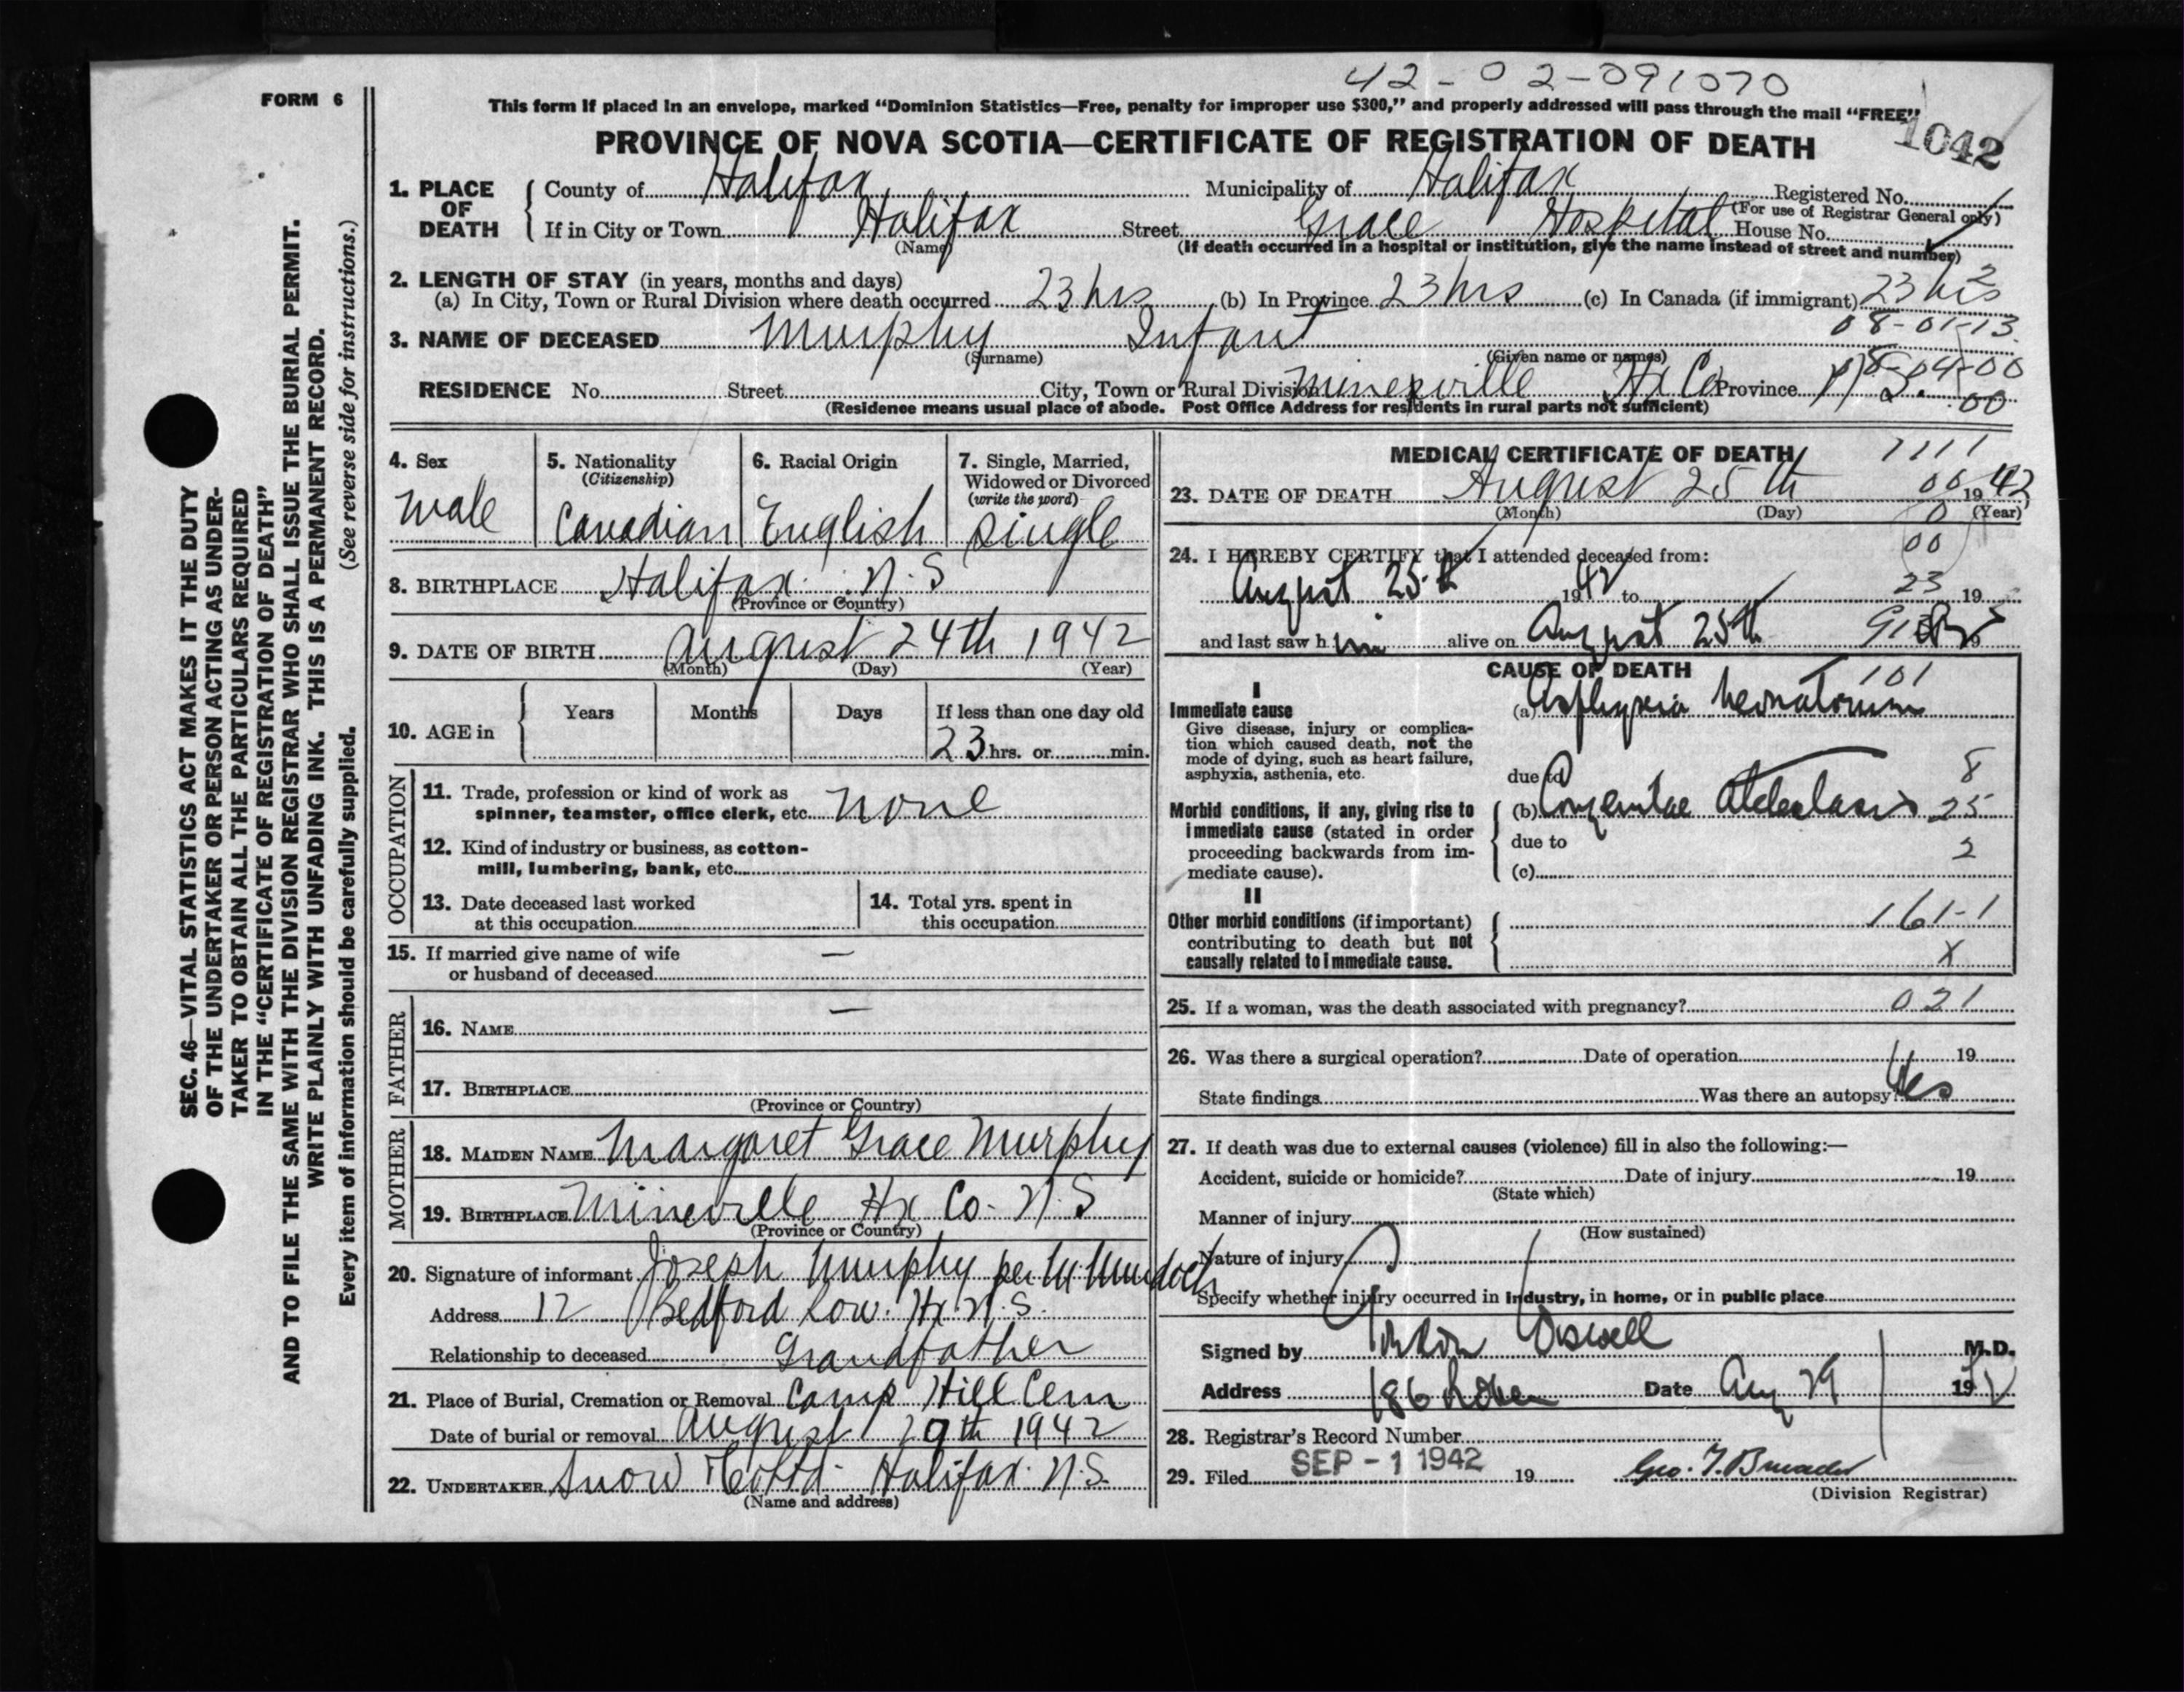 42-02-091070
FORM 6
This form if placed in an envelope, marked “Dominion Statistics—Free, penalty for improper use $300,” and properly addressed will pass through the mail “FREE”
PROVINCE OF NOVA SCOTIA—CERTIFICATE OF REGISTRATION OF DEATH
1042
1. PLACE OF DEATH
County of Halifax Municipality of Halifax Registered No.
(For use of Registrar General only)
If in City or Town Halifax Street Grace Hospital House No.
(Name) (If death occurred in a hospital or institution, give the name instead of street and number)
2. LENGTH OF STAY (in years, months and days)
(a) In City, Town or Rural Division where death occurred 23 hrs (b) In Province 23 hrs (c) In Canada (if immigrant) 23 hrs
2
08-01-13
3. NAME OF DECEASED Murphy Infant
(Surname) (Given name or names)
RESIDENCE No. Street City, Town or Rural Division Mineville Hx Co Province N.S.
08-04-00
00
(Residence means usual place of abode. Post Office Address for residents in rural parts not sufficient)
4. Sex
male
5. Nationality
(Citizenship)
Canadian
6. Racial Origin
English
7. Single, Married,
Widowed or Divorced
(write the word)
Single
8. BIRTHPLACE Halifax N.S
(Province or Country)
9. DATE OF BIRTH August 24th 1942
(Month) (Day) (Year)
10. AGE in
Years Months Days If less than one day old
23 hrs. or min.
OCCUPATION
11. Trade, profession or kind of work as
spinner, teamster, office clerk, etc. none
12. Kind of industry or business, as cotton-
mill, lumbering, bank, etc.
13. Date deceased last worked
at this occupation
14. Total yrs. spent in
this occupation
15. If married give name of wife
or husband of deceased —
FATHER
16. NAME —
17. BIRTHPLACE
(Province or Country)
MOTHER
18. MAIDEN NAME Margaret Grace Murphy
19. BIRTHPLACE Mineville Hx Co. N.S
(Province or Country)
20. Signature of informant Joseph Murphy per M Murdoch
Address 12 Bedford Row. Hx. N.S.
Relationship to deceased Grandfather
21. Place of Burial, Cremation or Removal Camp Hill Cem
Date of burial or removal August 29th 1942
22. UNDERTAKER Snow & Co Ltd. Halifax. N.S.
(Name and address)
MEDICAL CERTIFICATE OF DEATH
1111
23. DATE OF DEATH August 25th 1942
(Month) (Day) (Year)
00
0
00
24. I HEREBY CERTIFY that I attended deceased from:
August 25th 1942 to 19
23
and last saw him alive on August 25th 19
CAUSE OF DEATH
101
I
Immediate cause
Give disease, injury or complica-
tion which caused death, not the
mode of dying, such as heart failure,
asphyxia, asthenia, etc.
(a) Asphyxia neonatorum
due to
8
Morbid conditions, if any, giving rise to
immediate cause (stated in order
proceeding backwards from im-
mediate cause).
(b) Congenital Atelectasis
25
due to
2
(c)
II
Other morbid conditions (if important)
contributing to death but not
causally related to immediate cause.
161-1
X
25. If a woman, was the death associated with pregnancy?
021
26. Was there a surgical operation? Date of operation 19
State findings Was there an autopsy? Yes
27. If death was due to external causes (violence) fill in also the following:—
Accident, suicide or homicide? Date of injury 19
(State which)
Manner of injury
(How sustained)
Nature of injury
Specify whether injury occurred in Industry, in home, or in public place
Signed by M.D.
Address 186 Date Aug 29 19
28. Registrar's Record Number
29. Filed SEP - 1 1942 19
(Division Registrar)
SEC. 46—VITAL STATISTICS ACT MAKES IT THE DUTY
OF THE UNDERTAKER OR PERSON ACTING AS UNDER-
TAKER TO OBTAIN ALL THE PARTICULARS REQUIRED
IN THE “CERTIFICATE OF REGISTRATION OF DEATH”
AND TO FILE THE SAME WITH THE DIVISION REGISTRAR WHO SHALL ISSUE THE BURIAL PERMIT.
WRITE PLAINLY WITH UNFADING INK. THIS IS A PERMANENT RECORD.
Every item of information should be carefully supplied. (See reverse side for instructions.)